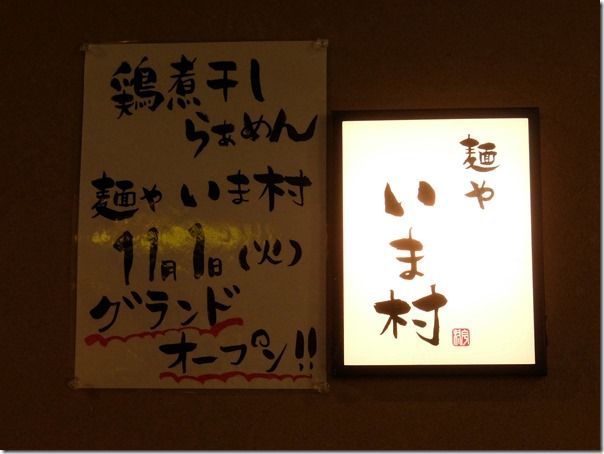 鶏煮干し
らぁめん
麺や いま村
11月1日(火)
グランド
オープン!!
麺や
いま村